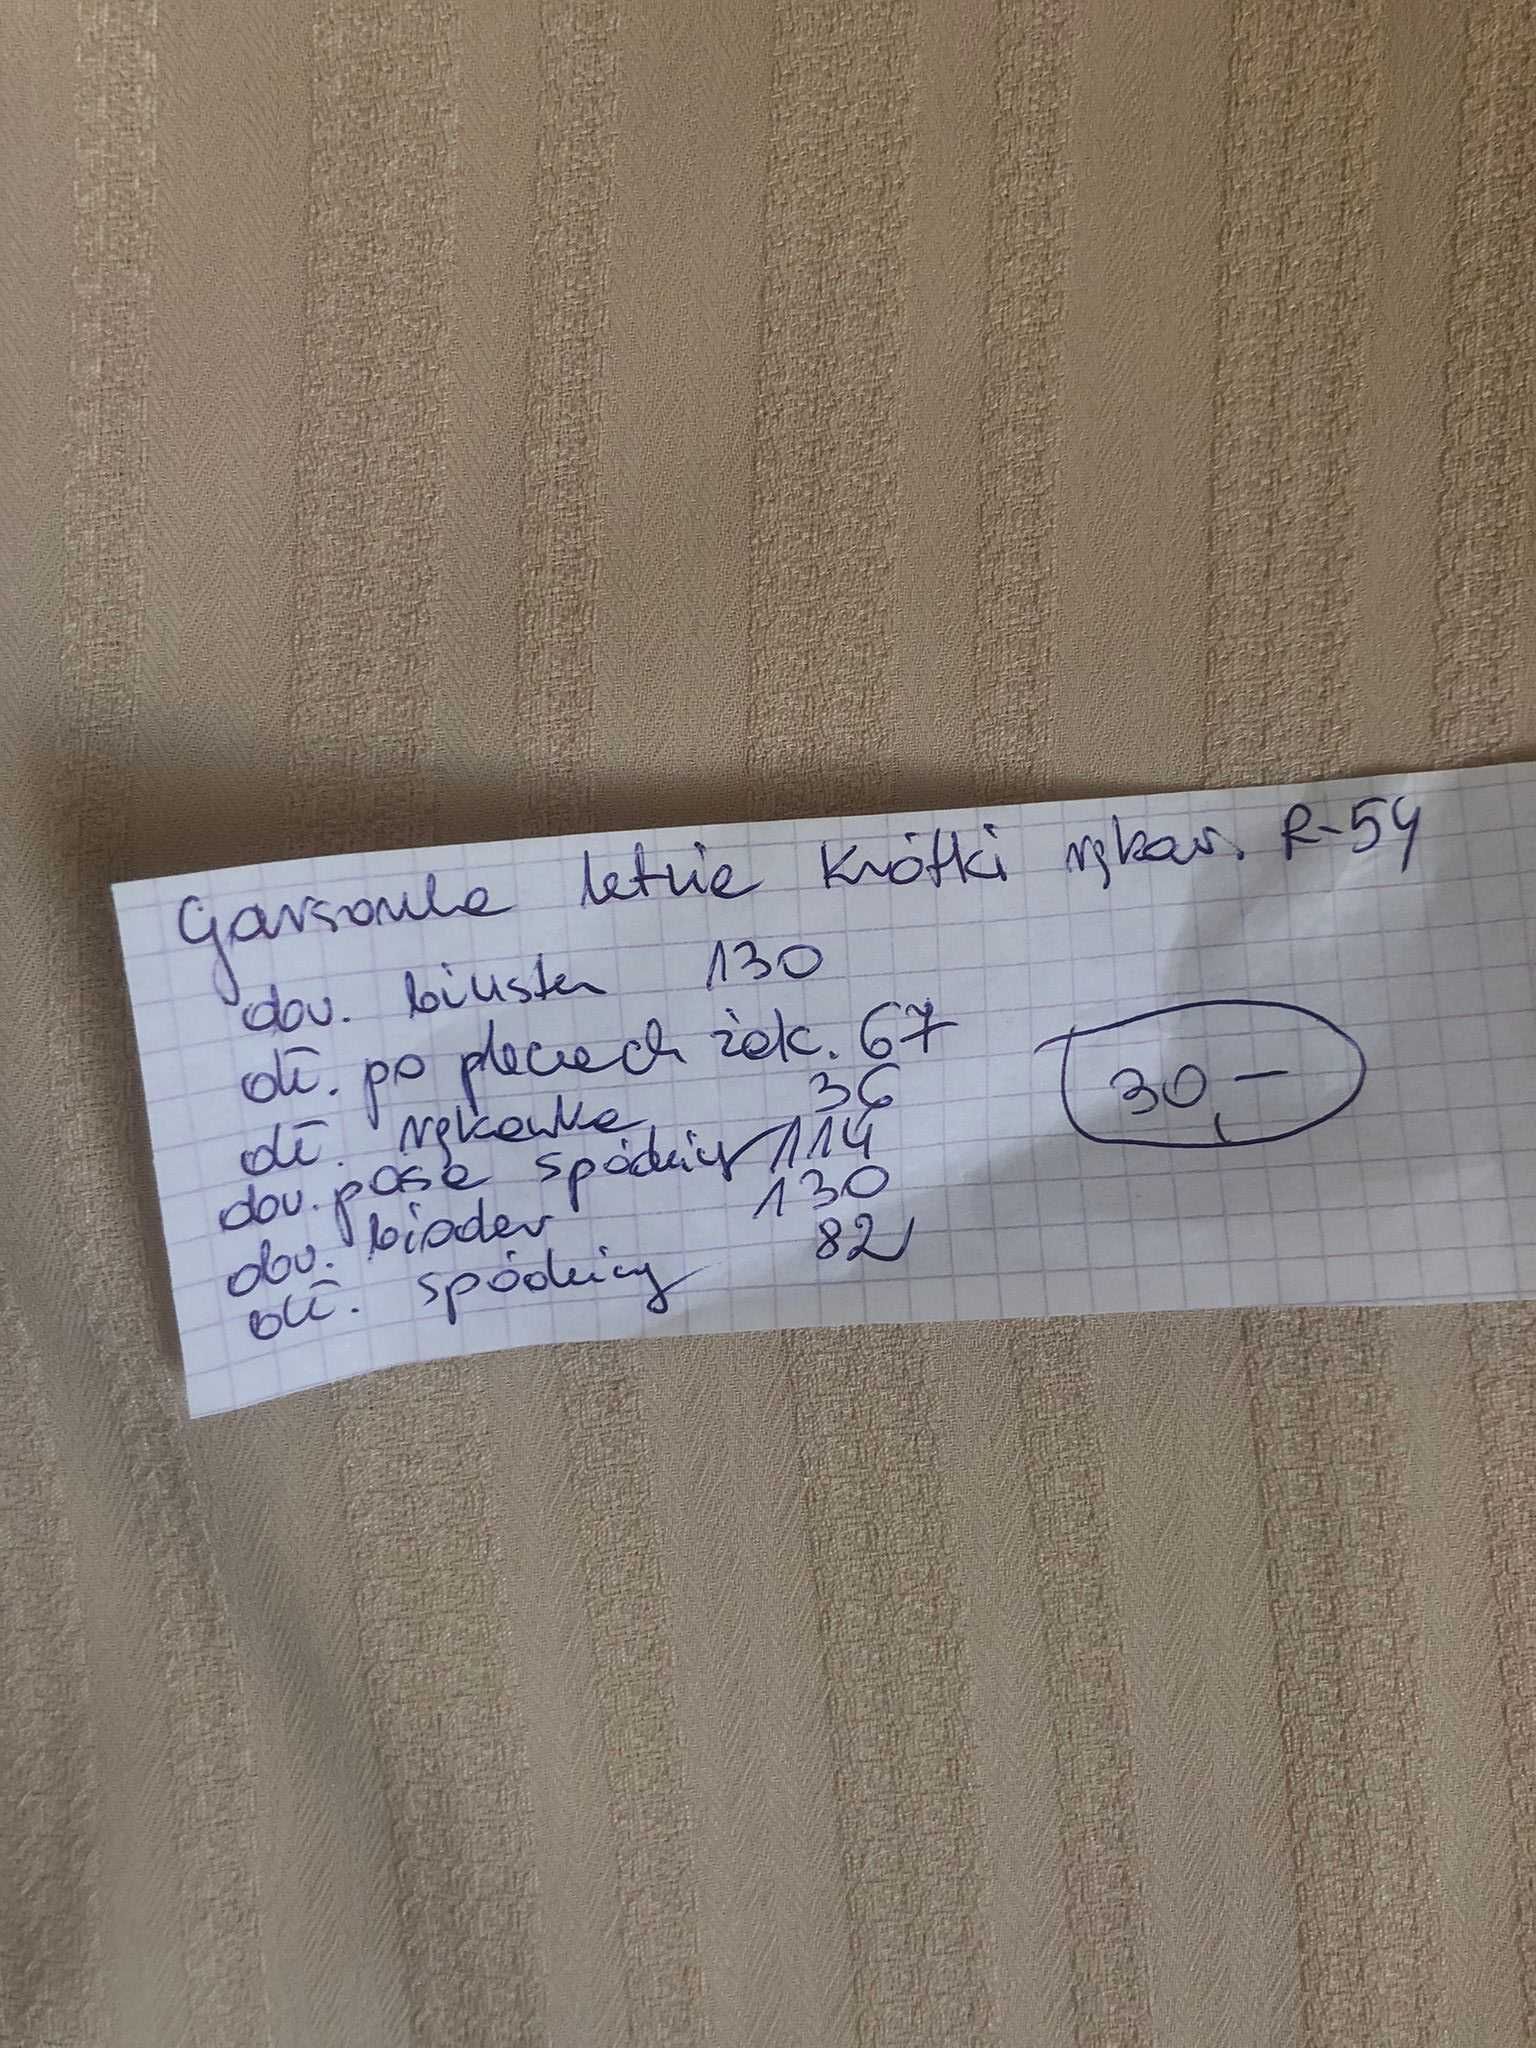 Garsonka letnia krótki rękaw. R-54
obw. biustu 130
dł. po plecach żak. 67
dł. rękawka 36
obw. pasa spódnicy 114
obw. bioder 130
dł. spódnicy 82
30,-